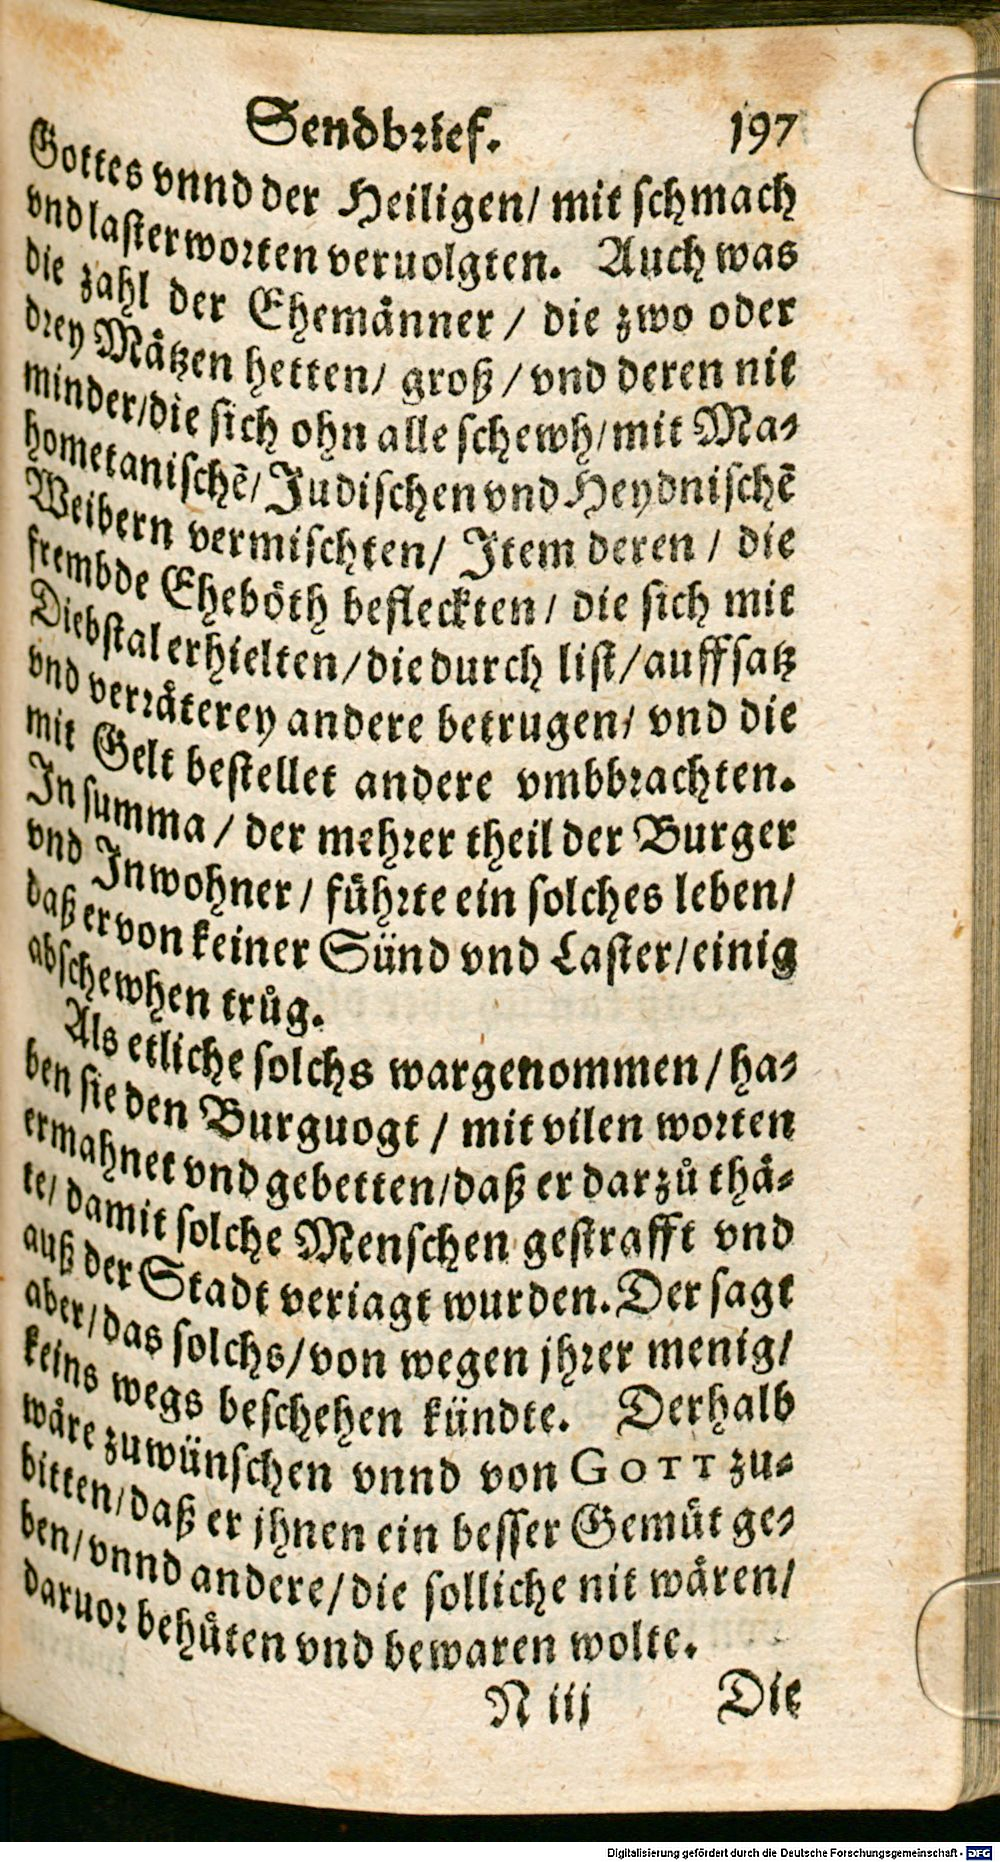 Sendbrief. 197
Gottes vnnd der Heiligen/ mit schmach
vnd lasterworten veruolgten. Auch was
die zahl der Ehemånner / die zwo oder
drey Måtzen hetten/ groß / vnd deren nit
minder/die sich ohn alle schewh/mit Ma-
hometanischē/Judischen vnd Heydnischē
Weibern vermischten/ Item deren / die
frembde Eheböth befleckten/ die sich mit
Diebstal erhielten/die durch list/auffsatz
vnd verråterey andere betrugen/ vnd die
mit Gelt bestellet andere vmbbrachten.
In summa / der mehrer theil der Burger
vnd Inwohner/ führte ein solches leben/
daß er von keiner Sünd vnd Laster/einig
abschewhen trůg.
Als etliche solchs wargenommen/ha-
ben sie den Burguogt / mit vilen worten
ermahnet vnd gebetten/daß er darzů thå-
te/ damit solche Menschen gestrafft vnd
auß der Stadt veriagt wurden. Der sagt
aber/das solchs/von wegen jhrer menig/
keins wegs beschehen kündte. Derhalb
wåre zuwünschen vnnd von GOTT zu-
bitten/daß er jhnen ein besser Gemüt ge-
ben/vnnd andere/die solliche nit wåren/
daruor behůten vnd bewaren wolte.
N iij Die
Digitalisierung gefördert durch die Deutsche Forschungsgemeinschaft - DFG